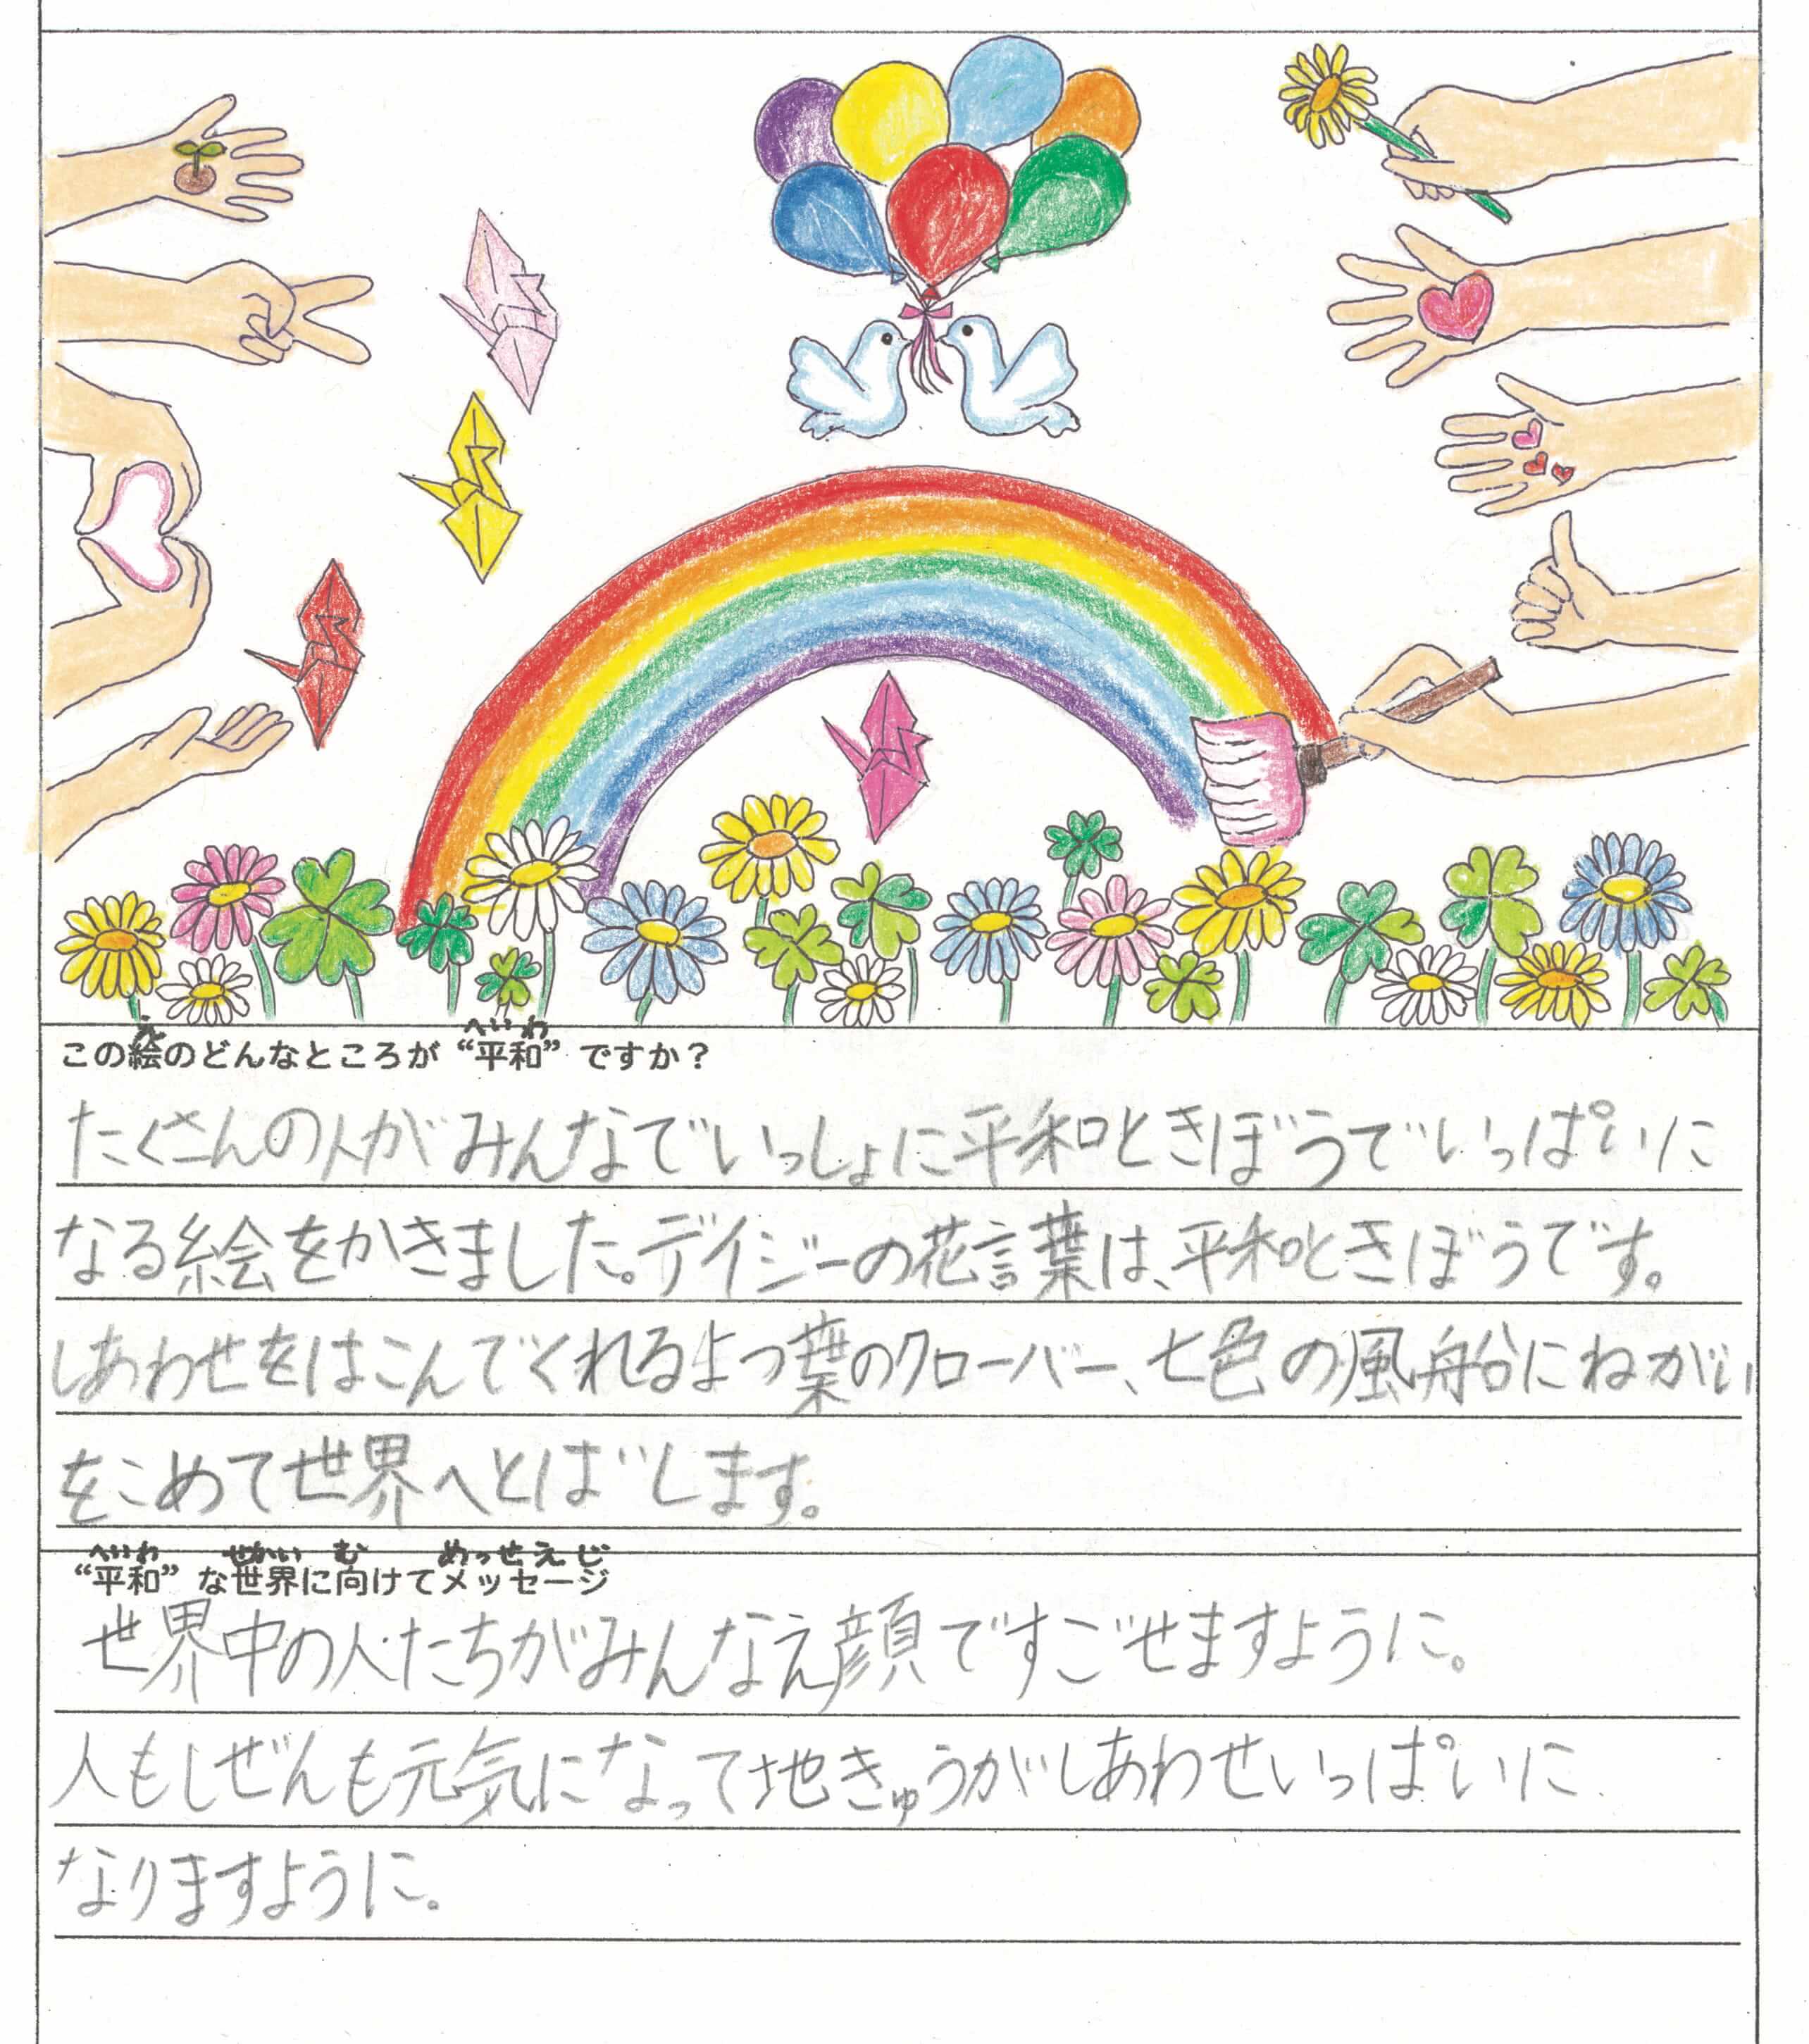 この絵のどんなところが“平和”ですか？
たくさんの人がみんなでいっしょに平和ときぼうでいっぱいに
なる絵をかきました。デイジーの花言葉は、平和ときぼうです。
しあわせをはこんでくれるよつ葉のクローバー、七色の風船にねがい
をこめて世界へとばします。
“平和”な世界に向けてメッセージ
世界中の人たちがみんなえ顔ですごせますように。
人もしぜんも元気になって地きゅうがしあわせいっぱいに
なりますように。